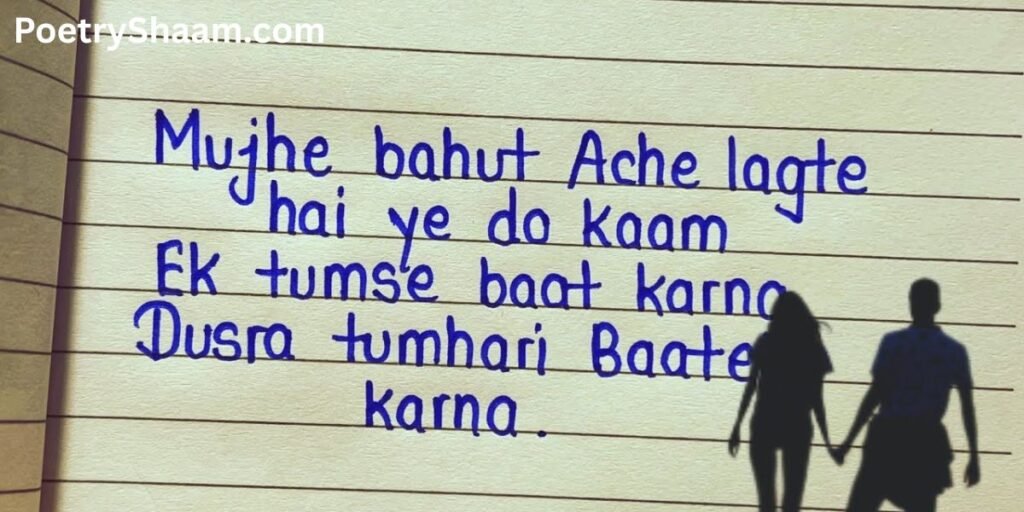 PoetryShaam.com
Mujhe bahut Ache lagte
hai ye do kaam
Ek tumse baat karna
Dusra tumhari Baate
karna.